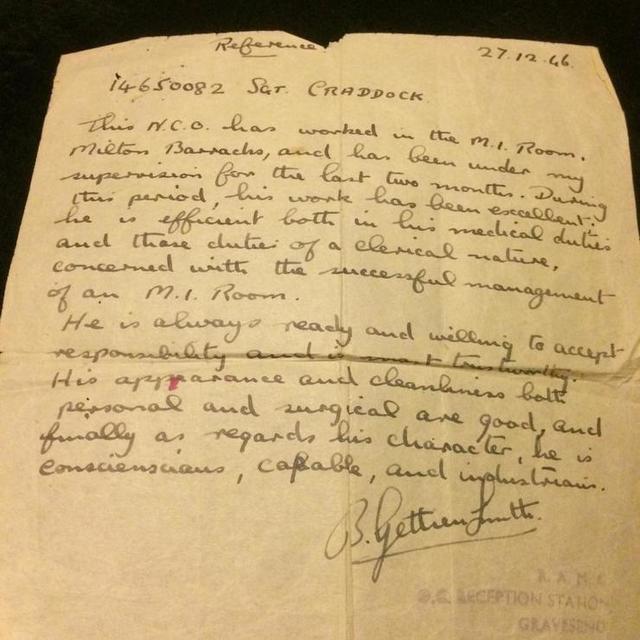 Reference
27.12.46
14650082 Sgt. CRADDOCK
This N.C.O. has worked in the M.I. Room.
Milton Barracks, and has been under my
supervision for the last two months. During
this period, his work has been excellent:
he is efficient both in his medical duties
and those duties of a clerical nature,
concerned with the successful management
of an M.I. Room.
He is always ready and willing to accept
responsibility and is most trustworthy.
His appearance and cleanliness both
personal and surgical are good, and
finally as regards his character, he is
conscienscious, capable, and industrious.
B. Smith.
R.A.M.C.
RECEPTION STATION
GRAVESEND